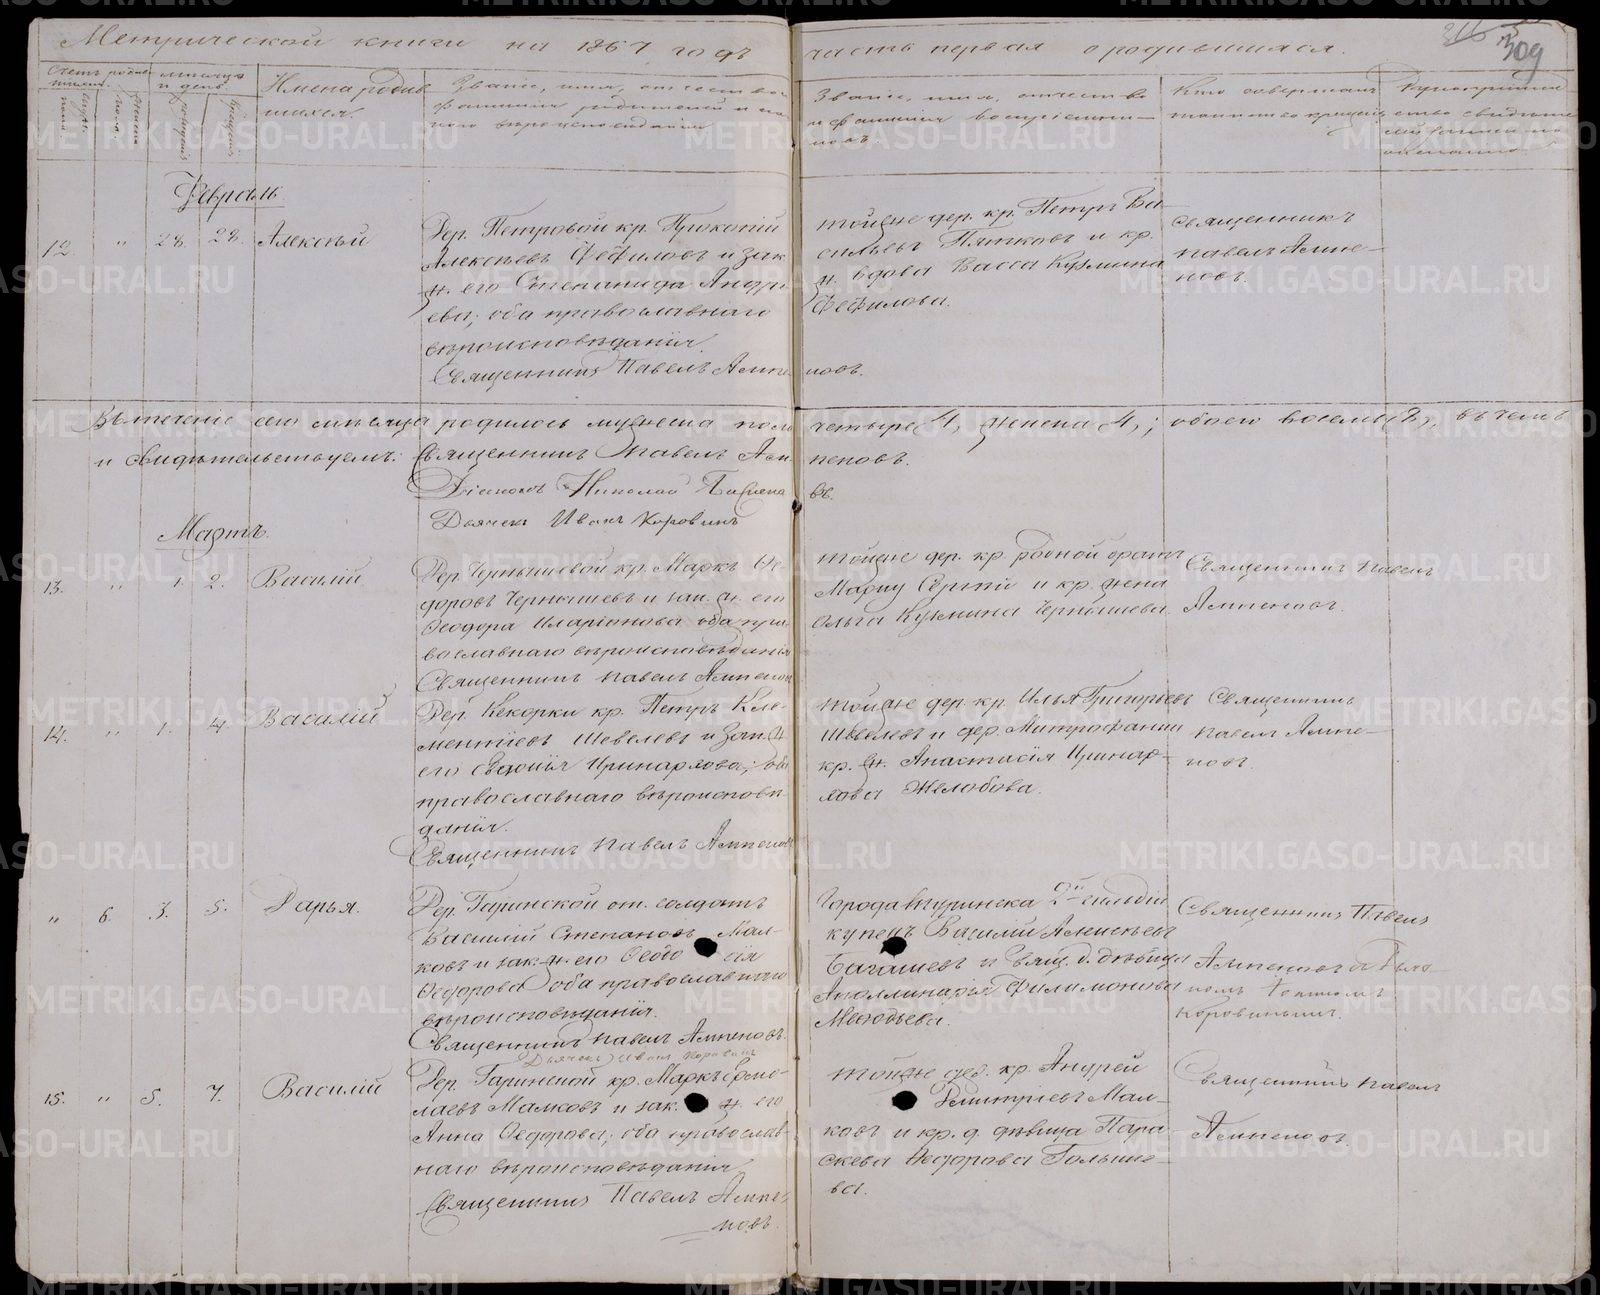 Метрической книги на 1867 годъ часть первая о родившихся.
309
Имена родив
шихся.
Званіе, имя, отчество и
фамилія родителей и ка
кого вѣроисповѣданія
Званіе, имя, отчество
и фамилія воспріемни-
ковъ.
Кто совершалъ
таинство крещенія
Рукоприклад
ство свидѣте
лей записи по
желанію.
Февраль
12. " 28. 28. Алексѣй
Дер. Петровой кр. Прокопій
Алексѣевъ Фефиловъ и зак.
ж. его Степанида Андре
ева; оба православнаго
вѣроисповѣданія.
Священникъ Павелъ Ампе
новъ.
тойже дер. кр. Петръ Ва-
сильевъ Пятковъ и кр.
ж. вдова Васса Кузмина
Фефилова.
Священникъ
Павелъ Ампе-
новъ.
Въ теченіе сего мѣсяца родилось мужеска пола четыре 4, женска 4,; обоего восемь 8,; въ чемъ
и свидѣтельствуемъ: Священникъ Павелъ Ам
пеновъ.
Діаконъ Николай
въ.
Дьячекъ Иванъ Коровинъ
Мартъ.
13. " 1. 2. Василій
Дер. Чернышевой кр. Маркъ Ѳе-
доровъ Чернышевъ и зак. ж. его
Ѳеодора Иларіонова оба пра-
вославнаго вѣроисповѣданія
Священникъ Павелъ Ампеновъ
тойже дер. кр. родной братъ
Марку Сергѣй и кр. жена
Ольга Кузмина Чернышева.
Священникъ Павелъ
Ампеновъ.
14. " 1. 4. Василій
Дер. Кекорки кр. Петръ Кле-
ментіевъ Шевелевъ и зак. ж.
его Евдокія Иринархова; оба
православнаго вѣроисповѣ
данія.
Священникъ Павелъ Ампеновъ
тойже дер. кр. Илья Григорьевъ
Шевелевъ и дер. Митрофании
кр. ж. Анастасія Иринар-
хова Желобова.
Священникъ
Павелъ Ампе-
новъ.
" 6. 3. 5. Дарья.
Дер. Гаринской от. солдатъ
Василій Степановъ Мал-
ковъ и зак. ж. его Ѳеодо сія
Ѳеодорова оба православнаго
вѣроисповѣданія.
Священникъ Павелъ Ампеновъ.
Дьячекъ Иванъ Коровинъ
Города Туринска 2й гильдіи
купецъ Василій Алексѣевъ
и свящ. д. дѣвица
Аполлинарья Филимонова
Меѳодьева.
Священникъ Павелъ
Ампеновъ съ
Коровинымъ.
15. " 5. 7. Василій
Дер. Гаринской кр. Маркъ Ермо-
лаевъ Малковъ и зак. ж. его
Анна Ѳеодорова; оба православ-
наго вѣроисповѣданія
Священникъ Павелъ Ампе
новъ.
тойже дер. кр. Андрей
Дмитріевъ Мал-
ковъ и кр. д. дѣвица Пара-
скева Ѳеодорова Голыше-
ва.
Священникъ Павелъ
Ампеновъ.
METRIKI.GASO-URAL.RU